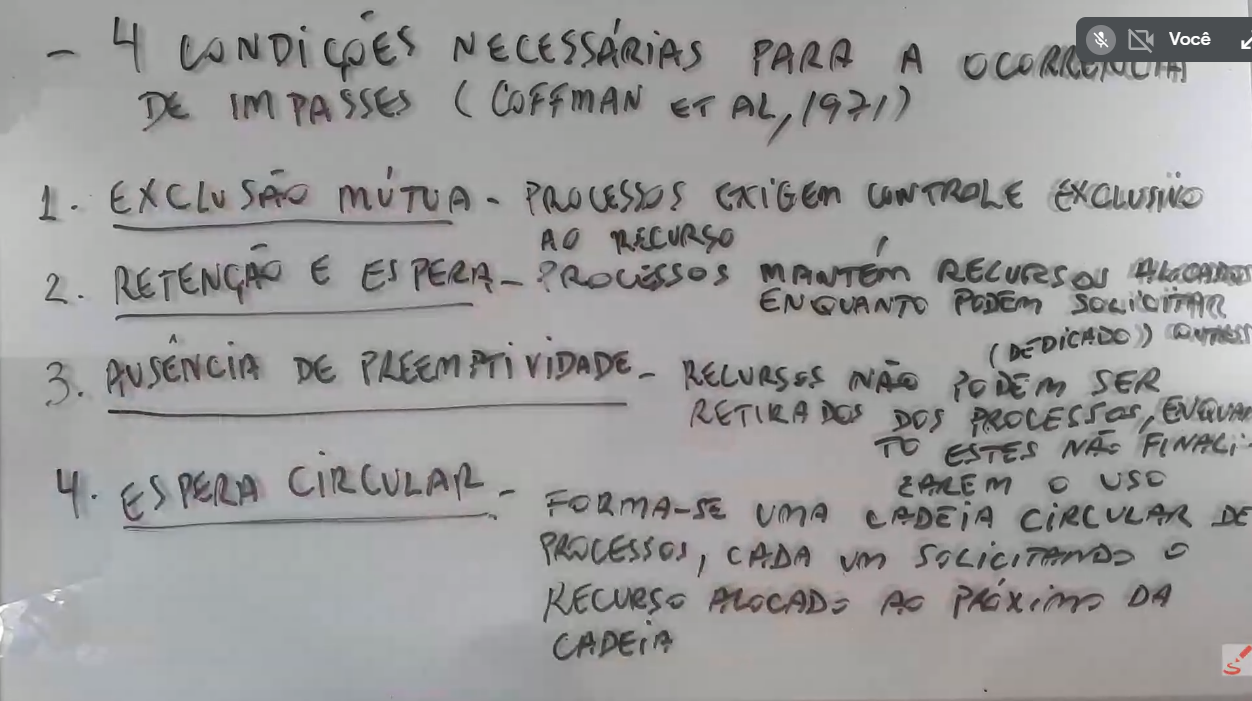 Você
- 4 CONDIÇÕES NECESSÁRIAS PARA A OCORRÊNCIA
DE IMPASSES (COFFMAN ET AL, 1971)
1. EXCLUSÃO MÚTUA - PROCESSOS EXIGEM CONTROLE EXCLUSIVO
AO RECURSO
2. RETENÇÃO E ESPERA - PROCESSOS MANTÉM RECURSOS ALOCADOS
ENQUANTO PODEM SOLICITAR
(DEDICADO)
3. AUSÊNCIA DE PREEMPTIVIDADE - RECURSOS NÃO PODEM SER
RETIRADOS DOS PROCESSOS, ENQUAN
TO ESTES NÃO FINALI-
ZAREM O USO
4. ESPERA CIRCULAR - FORMA-SE UMA CADEIA CIRCULAR DE
PROCESSOS, CADA UM SOLICITANDO O
RECURSO ALOCADO AO PRÓXIMO DA
CADEIA